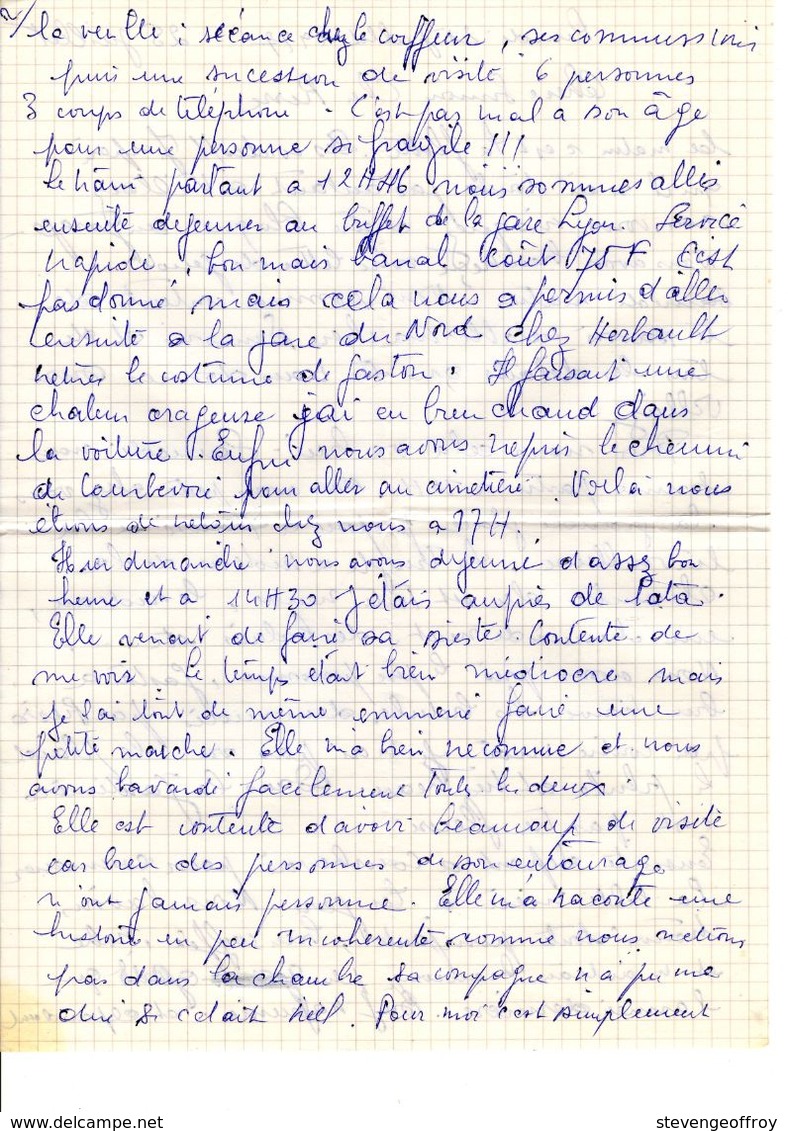 2/
la veille : sécance chez le coiffeur, ses commissions
puis une sucession de visite 6 personnes
3 coups de téléphone - C'est pas mal a son âge
pour une personne si fragile !!!
Le train partant a 12H46 nous sommes allés
ensuite dejeuner au buffet de la gare Lyon. Service
rapide, bon mais banal coût 75F C'est
pas donné mais cela nous a permis d'aller
ensuite a la gare du Nord chez Herbault
retirer le costume de Gaston. Il faisait une
chaleur orageuse j'ai eu bien chaud dans
la voiture. Enfin nous avons repris le chemin
de Courbevoie pour aller au cimetière. Voilà nous
étions de retour chez nous a 17H.
Hier dimanche nous avons dejeuné d'assez bon
heure et a 14H30 j'étais auprès de Tata.
Elle venait de faire sa sieste. Contente de
me voir. Le temps était bien médiocre mais
je l'ai tout de même emmené faire une
petite marche. Elle m'a bien reconnue et nous
avons bavardé facilement toutes les deux.
Elle est contente d'avoir beaucoup de visite
car bien des personnes de son entourage
n'ont jamais personne. Elle m'a raconté une
histoire un peu incoherente comme nous n'étions
pas dans la chambre sa compagne n'a pu me
dire si c'était réel. Pour moi c'est simplement
delcampe.net
stevengeoffroy